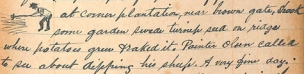 at corner plantation, near brown gate, took
some garden swede turnip seed on ridge
where potatoes grew & raked it. Painter Olsen called
to see about dipping his sheep. A very fine day.